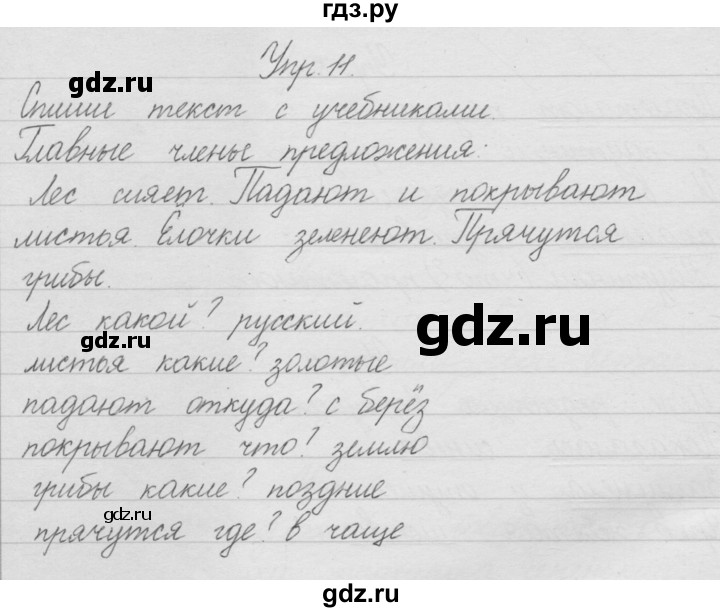 гдз.ру
Упр. 11.
gdz.ru
Спиши текст с учебниками.
Главные члены предложения:
Лес сияет. Падают и покрывают
листья. Ёлочки зеленеют. Прячутся
грибы.
Лес какой? русский.
gdz.ru
листья какие? золотые
падают откуда? с берёз
покрывают что? землю
грибы какие? поздние
gdz.ru
прячутся где? в чаще
gdz.ru